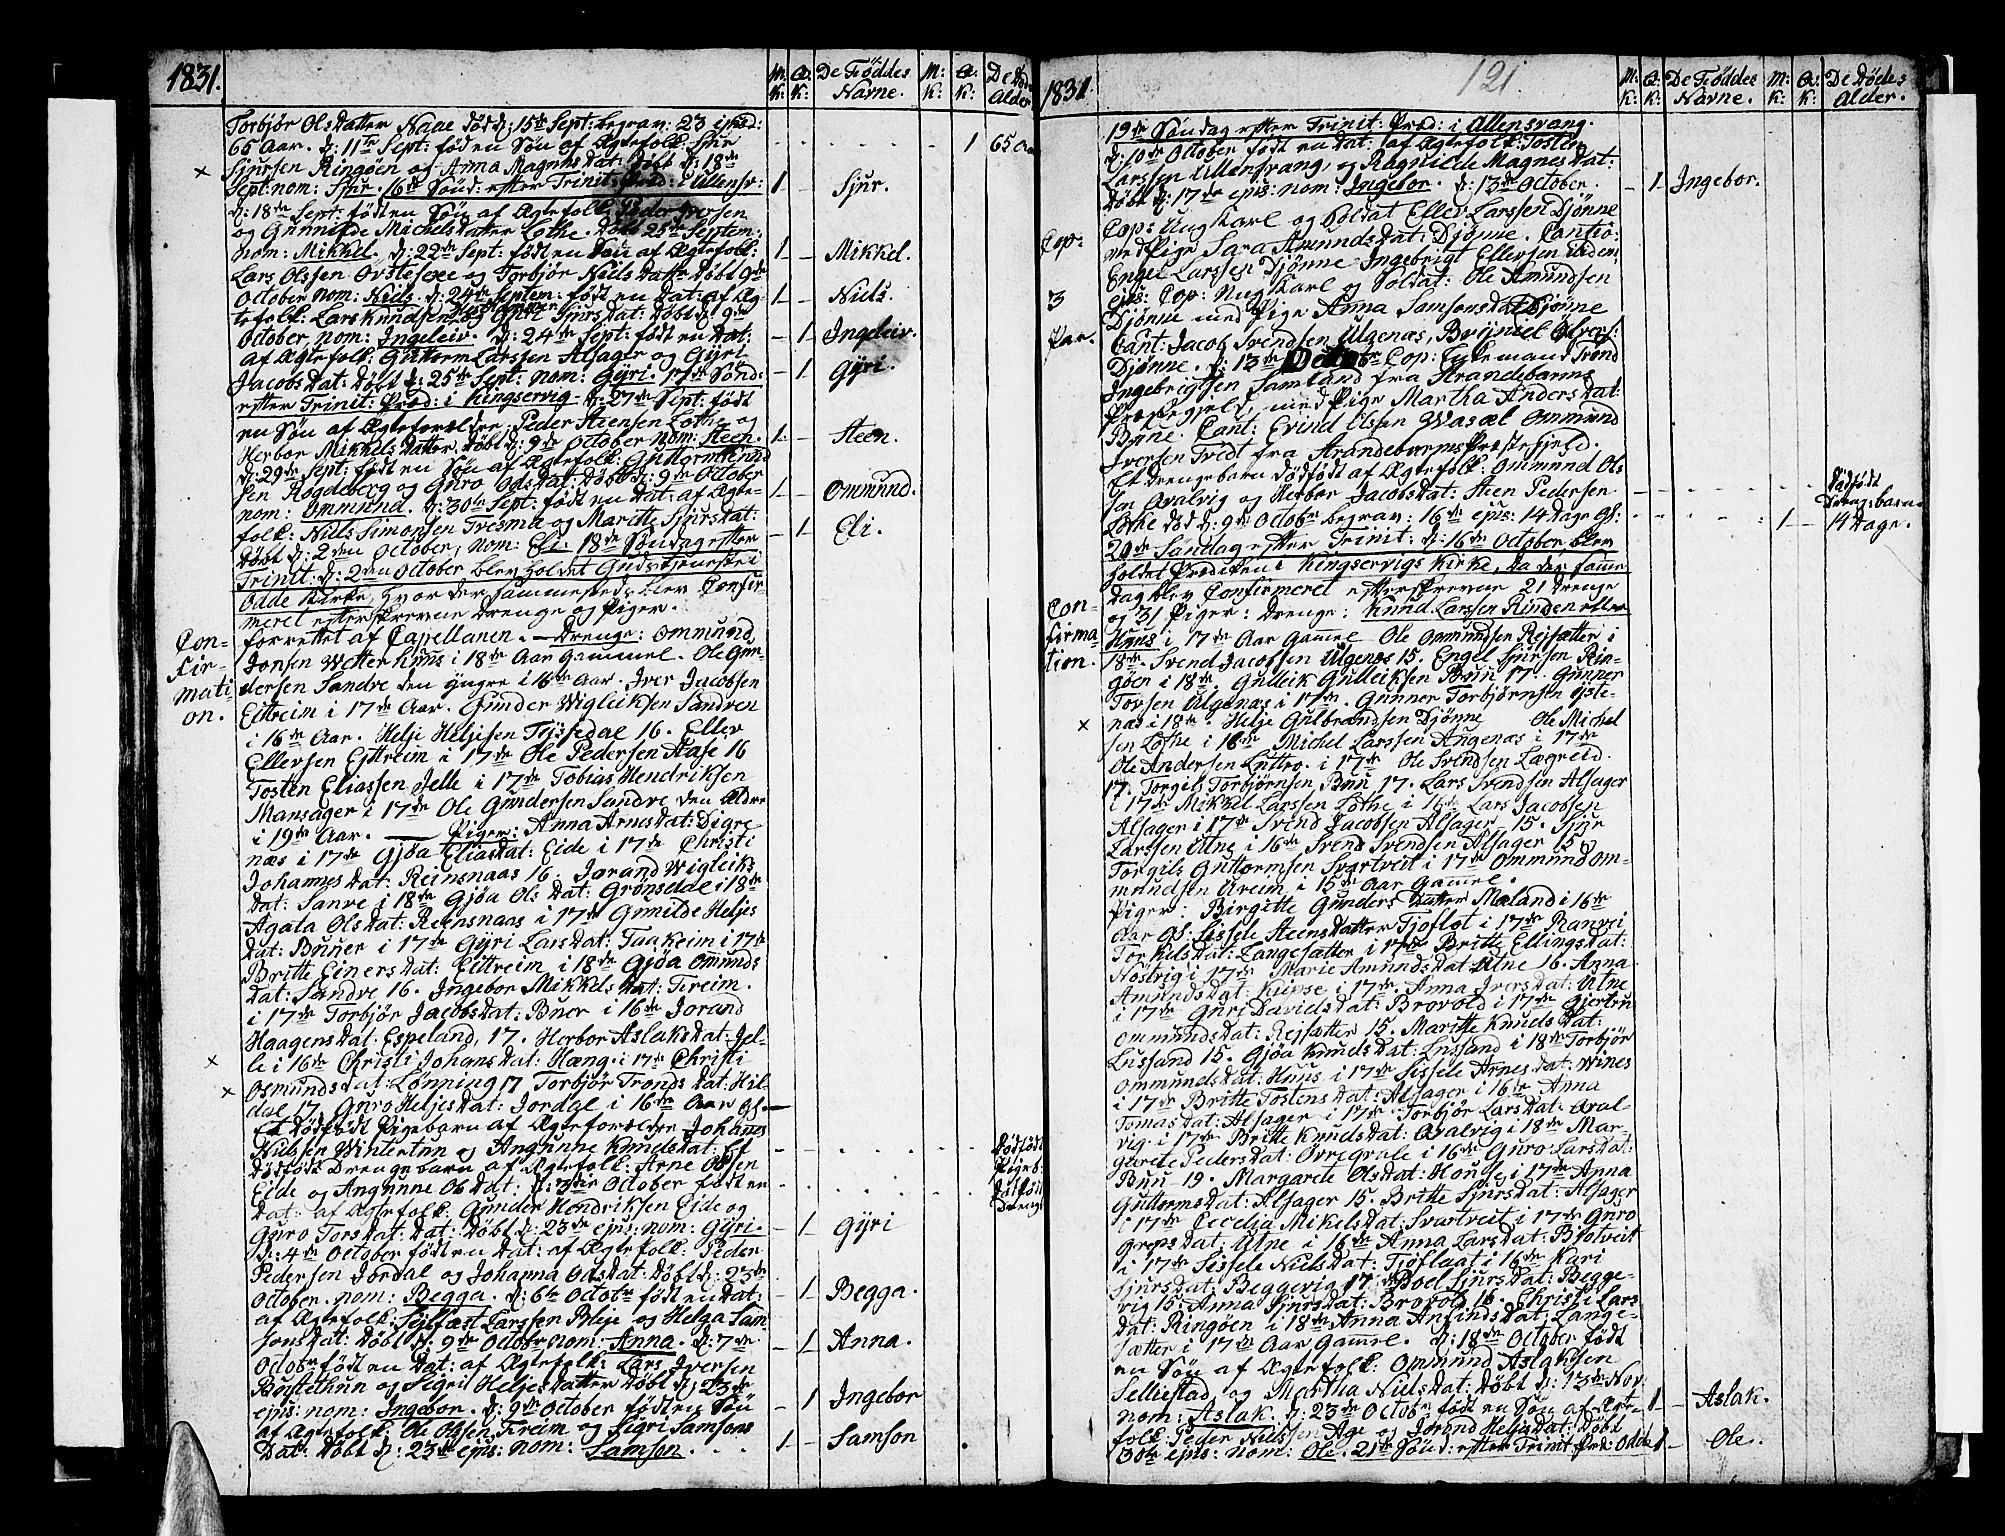 1831.
M: K:
Q: K:
De Føddes Navne.
M: K:
Q: K:
De Dødes Alder
Torbjør Olsdatter Naae død d: 15de Sept: begrav: 23 ejusd:
65 Aar. d: 11te Sept: fød en Søn af Ægtefolk: Sjur
1 65 Aar
Sjursen Ringøen og Anna Magnesdat: Døbt d: 18de
Sept: nom: Sjur. 16de Sønd: efter Trinit: Præd: i Ullensv:
1 Sjur.
d: 18de Sept: født en Søn af Ægtefolk: Peder Iversen
og Gunnilde Michelsdatter Lothe. Døbt 25de Septem:
nom: Mikkel. d: 22de Sept: født en Søn af Ægtefolk:
1 Mikkel.
Lars Olssen Østejæe og Torbjør Nielsdatr Døbt 9de
October nom: Niels. d: 24de Septem: født en Dat: af Æg-
1 Niels.
tefolk: Lars Knudsen og Gyri Sjursdat: Døbt d: 9de
October, nom: Ingeleiv. d: 24de Sept: født en Dat:
1 Ingeleiv.
af Ægtefolk: Guttorm Larssen Alsager og Gyri
Jacobsdat: Døbt d: 25de Sept: nom: Gyri. 17de Sønd:
1 Gyri.
efter Trinit: Præd: i Kingservig. d: 27de Sept: født
en Søn af Ægteforældre, Peder Steensen Lothe og
Herbor Mikkelsdatter. Døbt d: 9de October nom: Steen.
1 Steen.
d: 29de Sept: født en Søn af Ægtefolk: Guttorm
sen Rogdeberg og Guro Odsdat: Døbt d: 9de October
nom: Ommund. d: 30te Sept: født en Dat: af Ægte-
1 Ommund.
folk: Niels Simonsen Fresma og Maritte Sjursdat:
Døbt d: 2den October, nom: Eli. 18de Søndag efter
1 Eli.
Trinit: d: 2den October blev holdet Gudstjeneste i
Odde Kirke, hvor der sammesteds blev Confir-
meret efterskrevne Drenge og Piger.
forrettet af Capellanen. — Drenge: Ommund
Con-
Jonsen Wetterhuus i 18de Aar Gammel. Ole Gun-
fir-
dersen Sandre den yngre i 16de Aar. Iver Jacobsen
mati-
Eittreim i 17de Aar. Gunder Wigleiksen Sandven
on.
i 16de Aar. Helje Heljesen Tyssedal 16. Eller
Ellersen Eittreim i 17de Ole Pedersen Aase 16
Tosten Eliassen Jelle i 17de Tobias Hendriksen
Mansager i 17de Ole Gundersen Sandre den Ældre
i 19de Aar. — Piger: Anna Arnesdat: Digre-
næs i 17de Gjøa Eliasdat: Eide i 17de Christi
Johannesdat: Reinsnaas 16. Jorand Wigleiks
dat: Sanve i 18de Gjøa Olsdat: Grønsdal i 18de
Agata Olsdat: Reinsnaas i 17de Gunilde Heljes
dat: Buuer i 17de Gyri Larsdat: Taakeim i 17de
Britte Einersdat: Eittreim i 18de Gjøa Omunds
dat: Sandre 16. Ingebor Mikkelsdat: Freim.
i 17de Torbjør Jacobsdat: Buer i 16de Jorand
Haagensdat: Espeland, 17. Herbor Aslaksdat: Jel-
le i 16de Christi Johansdat: Hæng. i 17de Christi
Osmundsdat: Lønning 17 Torbjør Trondsdat: Hil-
dal 17. Guro Heljesdat: Jordal i 16de Aar Gl. —
Et Dødfødt Pigebarn af Ægteforældre Johanes
Nielsen Wintertun og Angunne Knudsdat: Et
Dødfødt Pigeb:
Dødfødt Drengebarn af Ægtefolk: Arne Olssen
Eide og Angunne Olsdat: d: 3die October født en
Dødfødt Dreng
Dat: af Ægtefolk: Gunder Hendriksen Eide og
Guro Torsdat: Dat: Døbt d: 23de ejus: nom: Gyri.
1 Gyri
d: 4de October født en Dat: af Ægtefolk: Peder
Pedersen Jordal og Johanna Odsdat: Døbt d: 23de
October. nom: Begga. d: 6te Octobr født en Dat:
1 Begga.
af Ægtefolk: Seilfæst Larssen Bleje og Helga Sam-
sonsdat: Døbt d: 9de Octobr nom: Anna. d: 7de
1 Anna.
Octobr født en Dat: af Ægtefolk: Lars Iversen
Bustethun og Sigri Heljesdatter Døbt d: 23de
ejus: nom: Ingebor. d: 9de October født en Søn
1 Ingebor
af Ægtefolk: Ole Olssen Freim og Sigri Samsons
Dat: Døbt d: 23de ejus: nom: Samson.
1 Samson
1831
121.
M: K:
Q: K:
De Føddes Navne.
M: K:
Q: K:
De Dødes Alder.
19de Søndag efter Trinit: Præd: i Ullensvang.
d: 10de October født en Dat: af Ægtefolk: Tosten
Larssen Ullensvang, og Ragnilde Magnesdat:
Døbt d: 17de ejus: nom: Ingebor. d: 13de October.
1 Ingebor.
Cop: Ung Karl og Soldat Eller Larssen Djønne
Cop:
med Pige Sara Amundsdat: Djønne. Cantio:
Engel Larssen Djønne Ingebrigt Ellersen ibidem
3
ejus: Cop: Ung Karl og Soldat: Ole Amundsen
Djønne med Pige Anna Samsonsdat: Djønne
Par.
Cant: Jacob Svendsen Ulgenæs, Brynild
Djønne. d: 13de Octobr Cop: Enkemand Trond
Ingebrigtsen Samland fra Strandebarms
Præstegjeld, med Pige Martha Andersdat:
Bune. Cant: Erind Olsen Wasæl Ommund
Iversen Tvedt fra Strandebarms Præstegjeld.
Et Drengebarn Dødfødt af Ægtefolk: Ommund Ol-
sen Qvalvig og Herbor Jacobsdat: Steen Pedersen
Dødfødt Drengebarn
Lothe død d: 9de Octobr begrav: 16de ejus: 14 Dage Gl:
1 14 Dage.
20de Søndag efter Trinit: d: 16de October blev
holdet Prædiken i Kingservigs Kirke, da der samme
Dag blev Confirmeret efterskrevne 21 Drenge
Con-
og 31 Piger: Drenge: Knud Larssen Rinden eller
firma-
Huus i 17de Aar Gamel Ole Ommundsen Rejsæter i
tion.
18de. Svend Jacobsen Ulgenæs 15. Engel Sjursen Rin-
gøen i 18de Gulleik Gulleiksen Buu 17. Gunner
Torsen Ulgenæs i 17de. Gunner Torbjørnsen Yste-
næs i 18de. Helje Gulbrandsen Djønne Ole Michel
sen Lothe i 18de Michel Larssen Augenæs i 17de
Ole Andersen Luttro. i 17de Ole Svendsen Lægreid.
17. Torgils Torbjørnsen Buu 17. Lars Svendsen Alsager
i 17de Mikkel Larssen Lothe i 16de Lars Jacobsen
Alsager i 17de Svend Jacobsen Alsager 15. Sjur
Larssen Utne i 16de Svend Svendsen Alsager 15
Torgils Guttormsen Svartveit i 17de Ommund Om-
mundsen Aareim i 15de Aar Gamel.
Piger: Birgitte Gundersdatter Mæland i 16de
Aar Gl. Sissele Steensdatter Tjoflot i 17de Ranvei
Torkelsdat: Langesætter i 17de Britte Ellingsdat:
Nøstvig i 17de Marie Amundsdat Utne 16. Anna
Amundsdat: Kvipse i 17de. Anna Iversdat: Utne
i 17de Guri Davidsdat: Brovold i 17de Gjertru
Ommundsdat: Rejsætter 15. Maritte Knudsdat:
Lussand 15. Gjøa Knudsdat: Lussand i 18de Torbjør
Ommundsdat: Huus i 17de Sissele Arnesdat: Wines
i 17de Britte Tostensdat: Alsager i 16de Anna
Tomasdat: Alsager i 17de. Torbjør Larsdat: Qval-
vig. i 17de Britte Knudsdat: Qvalvig i 18de Mar-
garete Pedersdat: Ørregrale i 16de Guro Larsdat:
Buu 19. Margarete Olsdat: House i 17de Anna
Guttormsdat: Alsager 15. Britte Sjursdat: Alsager
i 17de Cecelja Mikelsdat: Svartveit i 17de Guro
Grepsdat: Utne i 16de Anna Larsdat: Bjotveit
i 17de Sissele Nielsdat: Tjoflaat i 16de Kari
Sjursdat: Beggevig 17 Boel Sjursdat: Begge-
vig 15. Anna Sjursdat: Brovold 16. Christi Lars
dat: Ringøen i 18de Anna Anfindsdat: Lange-
sætter i 17de Aar Gamel. d: 18de October født
en Søn af Ægtefolk: Ommund Aslaksen
Selliestad og Martha Nielsdat: Døbt d: 13de Nov:
nom: Aslak. d: 23de Octobr født en Søn af Ægte-
1 Aslak.
folk: Peder Nielssen Age og Jorond Heljedat: Døbt
30te ejus: nom: Ole. 21de Sønd: efter Trinit Præd: Odde
1 Ole.